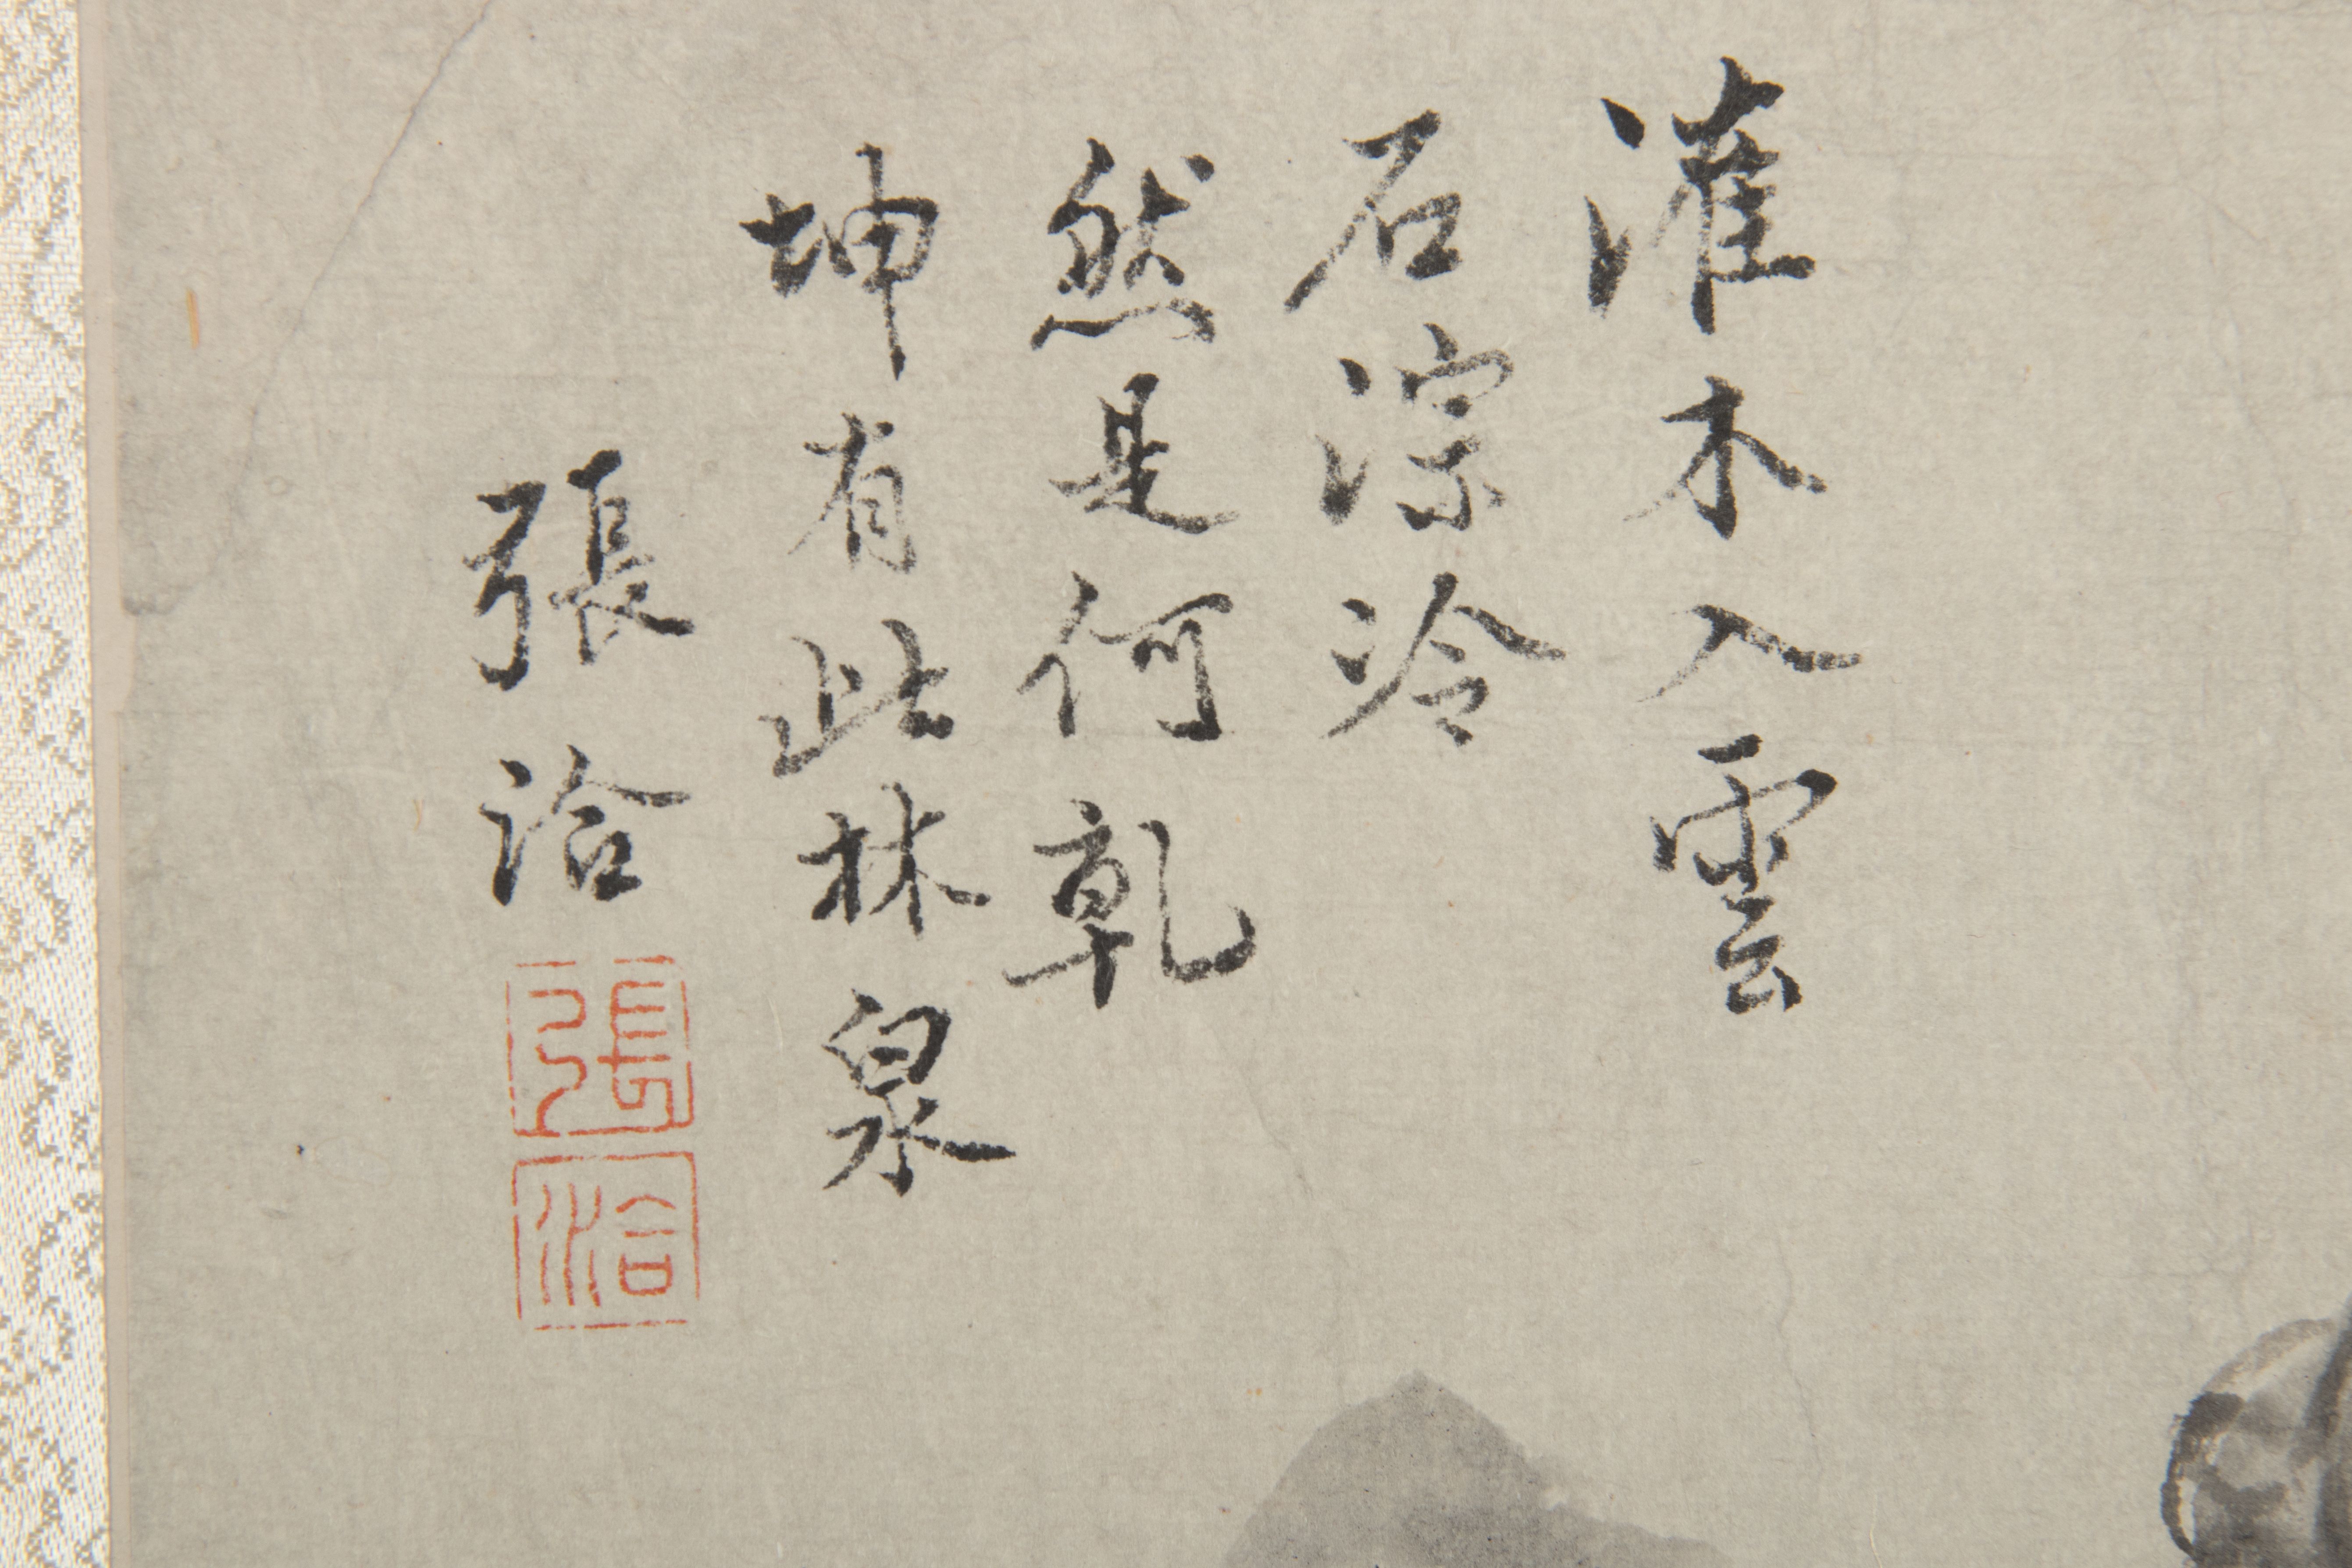 灌木入雲
石淙泠
然是何乾
坤有此林泉
張洽
張
洽